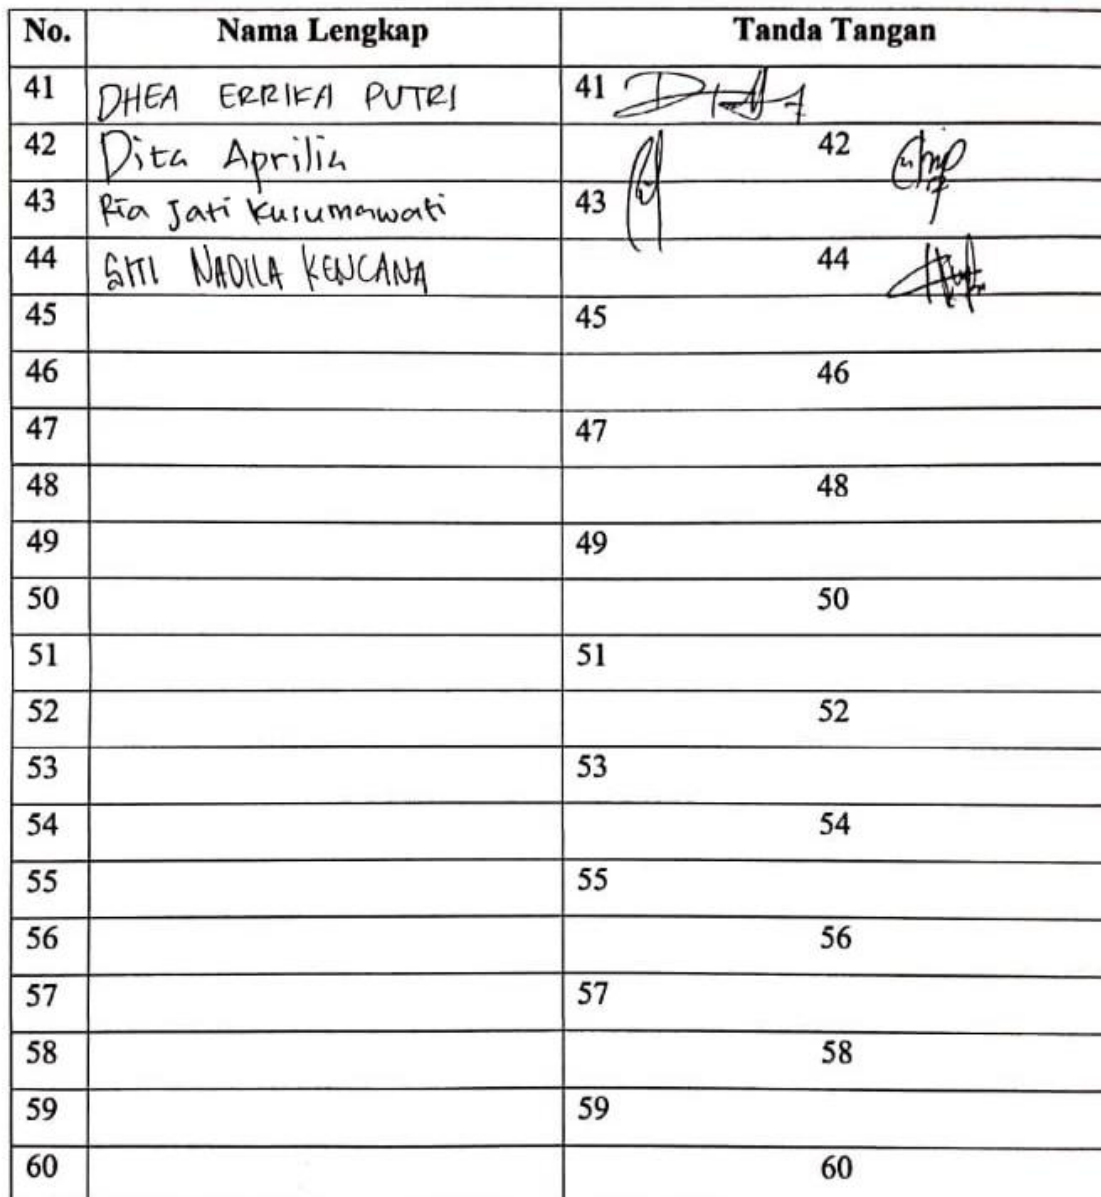 No. Nama Lengkap Tanda Tangan
41 DHEA ERRIKA PUTRI 41
42 Dita Aprilia 42
43 Ria Jati Kusumawati 43
44 SITI NADILA KENCANA 44
45 45
46 46
47 47
48 48
49 49
50 50
51 51
52 52
53 53
54 54
55 55
56 56
57 57
58 58
59 59
60 60